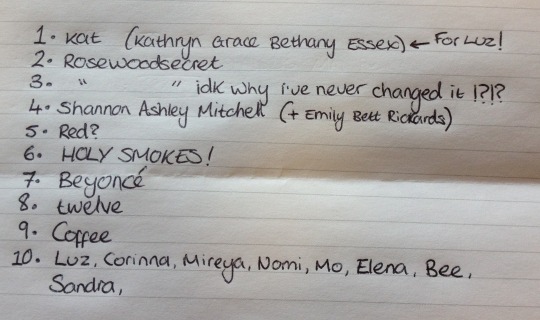 1. Kat (Kathryn Grace Bethany Essex) ← For Luz!
2. Rosewoodsecret
3. " " idk why i've never changed it !?!?
4. Shannon Ashley Mitchell (+ Emily Bett Rickards)
5. Red?
6. HOLY SMOKES!
7. Beyoncé
8. twelve
9. Coffee
10. Luz, Corinna, Mireya, Nomi, Mo, Elena, Bee,
Sandra,